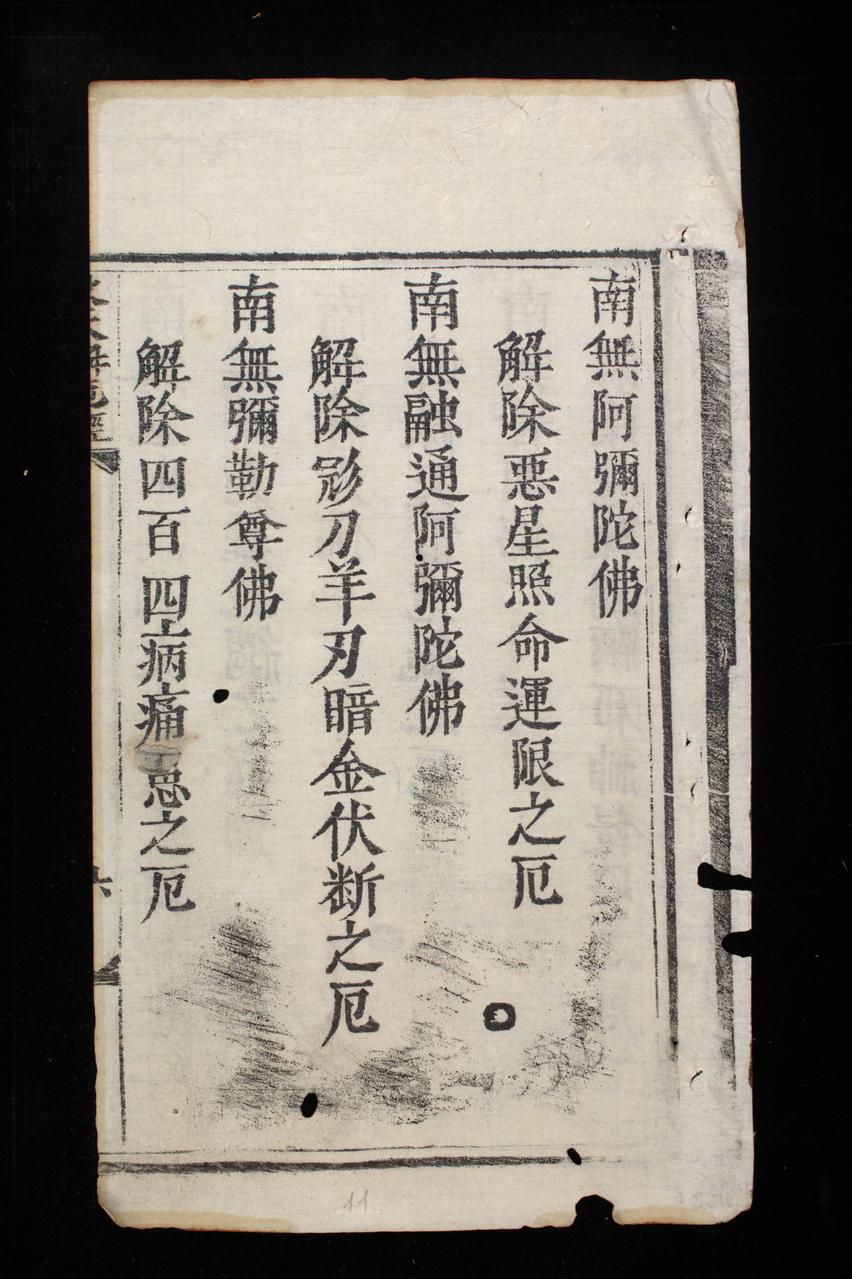 南無阿彌陀佛
解除惡星照命運限之厄
南無融通阿彌陀佛
解除彨刀羊刃暗金伏断之厄
南無彌勒尊佛
解除四百四病痛患之厄
厄經
六
11